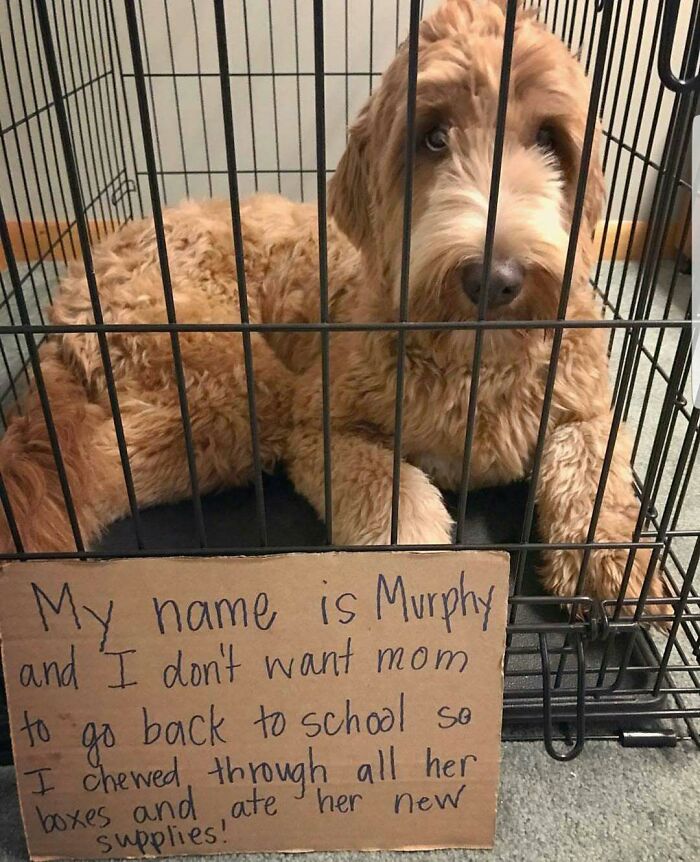 My name is Murphy
and I don't want mom
to go back to school so
I chewed through all her
boxes and ate her new
supplies!